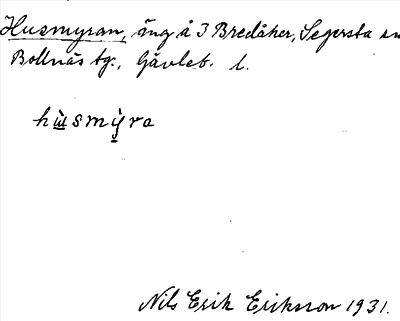 Husmyran, äng å 3 Bredåker, Segersta sn
Bollnäs tg., Gävleb. l.
hu̲smy̲ra
Nils Erik Eriksson 1931.